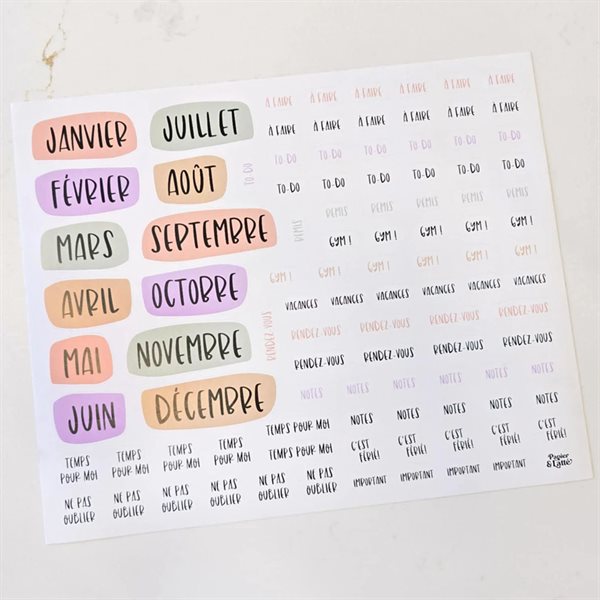 JANVIER
FÉVRIER
MARS
AVRIL
MAI
JUIN
JUILLET
AOÛT
SEPTEMBRE
OCTOBRE
NOVEMBRE
DÉCEMBRE
À FAIRE À FAIRE À FAIRE À FAIRE À FAIRE À FAIRE
À FAIRE À FAIRE À FAIRE À FAIRE À FAIRE À FAIRE
TO-DO
TO-DO TO-DO TO-DO TO-DO TO-DO TO-DO
TO-DO TO-DO TO-DO TO-DO TO-DO TO-DO
REMIS
REMIS REMIS REMIS REMIS REMIS
GYM ! GYM ! GYM ! GYM ! GYM !
GYM ! GYM ! GYM ! GYM ! GYM ! GYM !
VACANCES VACANCES VACANCES VACANCES VACANCES VACANCES
RENDEZ-VOUS
RENDEZ-VOUS RENDEZ-VOUS RENDEZ-VOUS RENDEZ-VOUS
RENDEZ-VOUS RENDEZ-VOUS RENDEZ-VOUS RENDEZ-VOUS
NOTES NOTES NOTES NOTES NOTES NOTES
TEMPS POUR MOI NOTES NOTES NOTES NOTES NOTES
TEMPS TEMPS TEMPS TEMPS TEMPS POUR MOI C'EST C'EST C'EST C'EST C'EST
POUR MOI POUR MOI POUR MOI POUR MOI FÉRIÉ! FÉRIÉ! FÉRIÉ! FÉRIÉ! FÉRIÉ!
NE PAS NE PAS NE PAS NE PAS NE PAS NE PAS IMPORTANT IMPORTANT IMPORTANT IMPORTANT
OUBLIER OUBLIER OUBLIER OUBLIER OUBLIER OUBLIER
Papier
& Latté